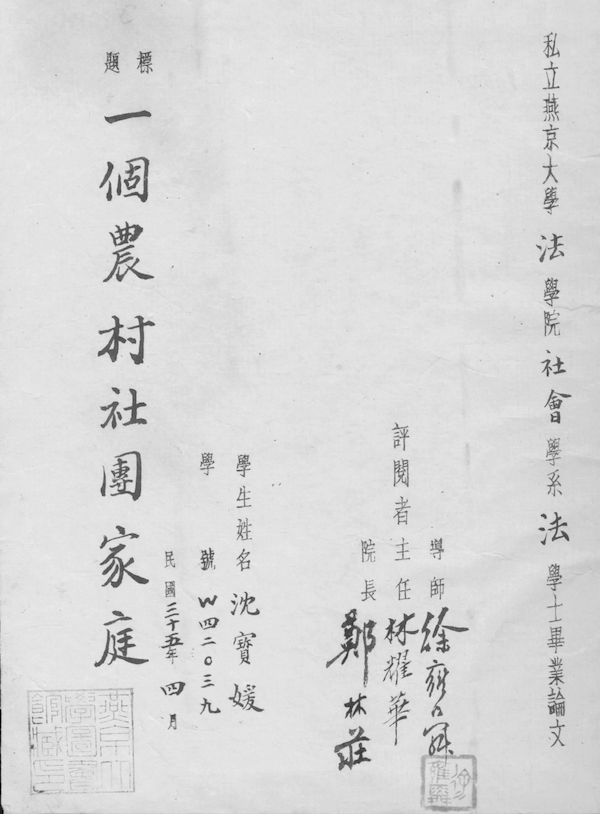 私立燕京大學法學院社會學系法學士畢業論文
導師徐雍舜
評閱者主任林耀華
院長鄭林莊
學生姓名沈寶媛
學號W四二〇三九
民國三十五年四月
標題
一個農村社團家庭
燕京大
學圖書
館藏印